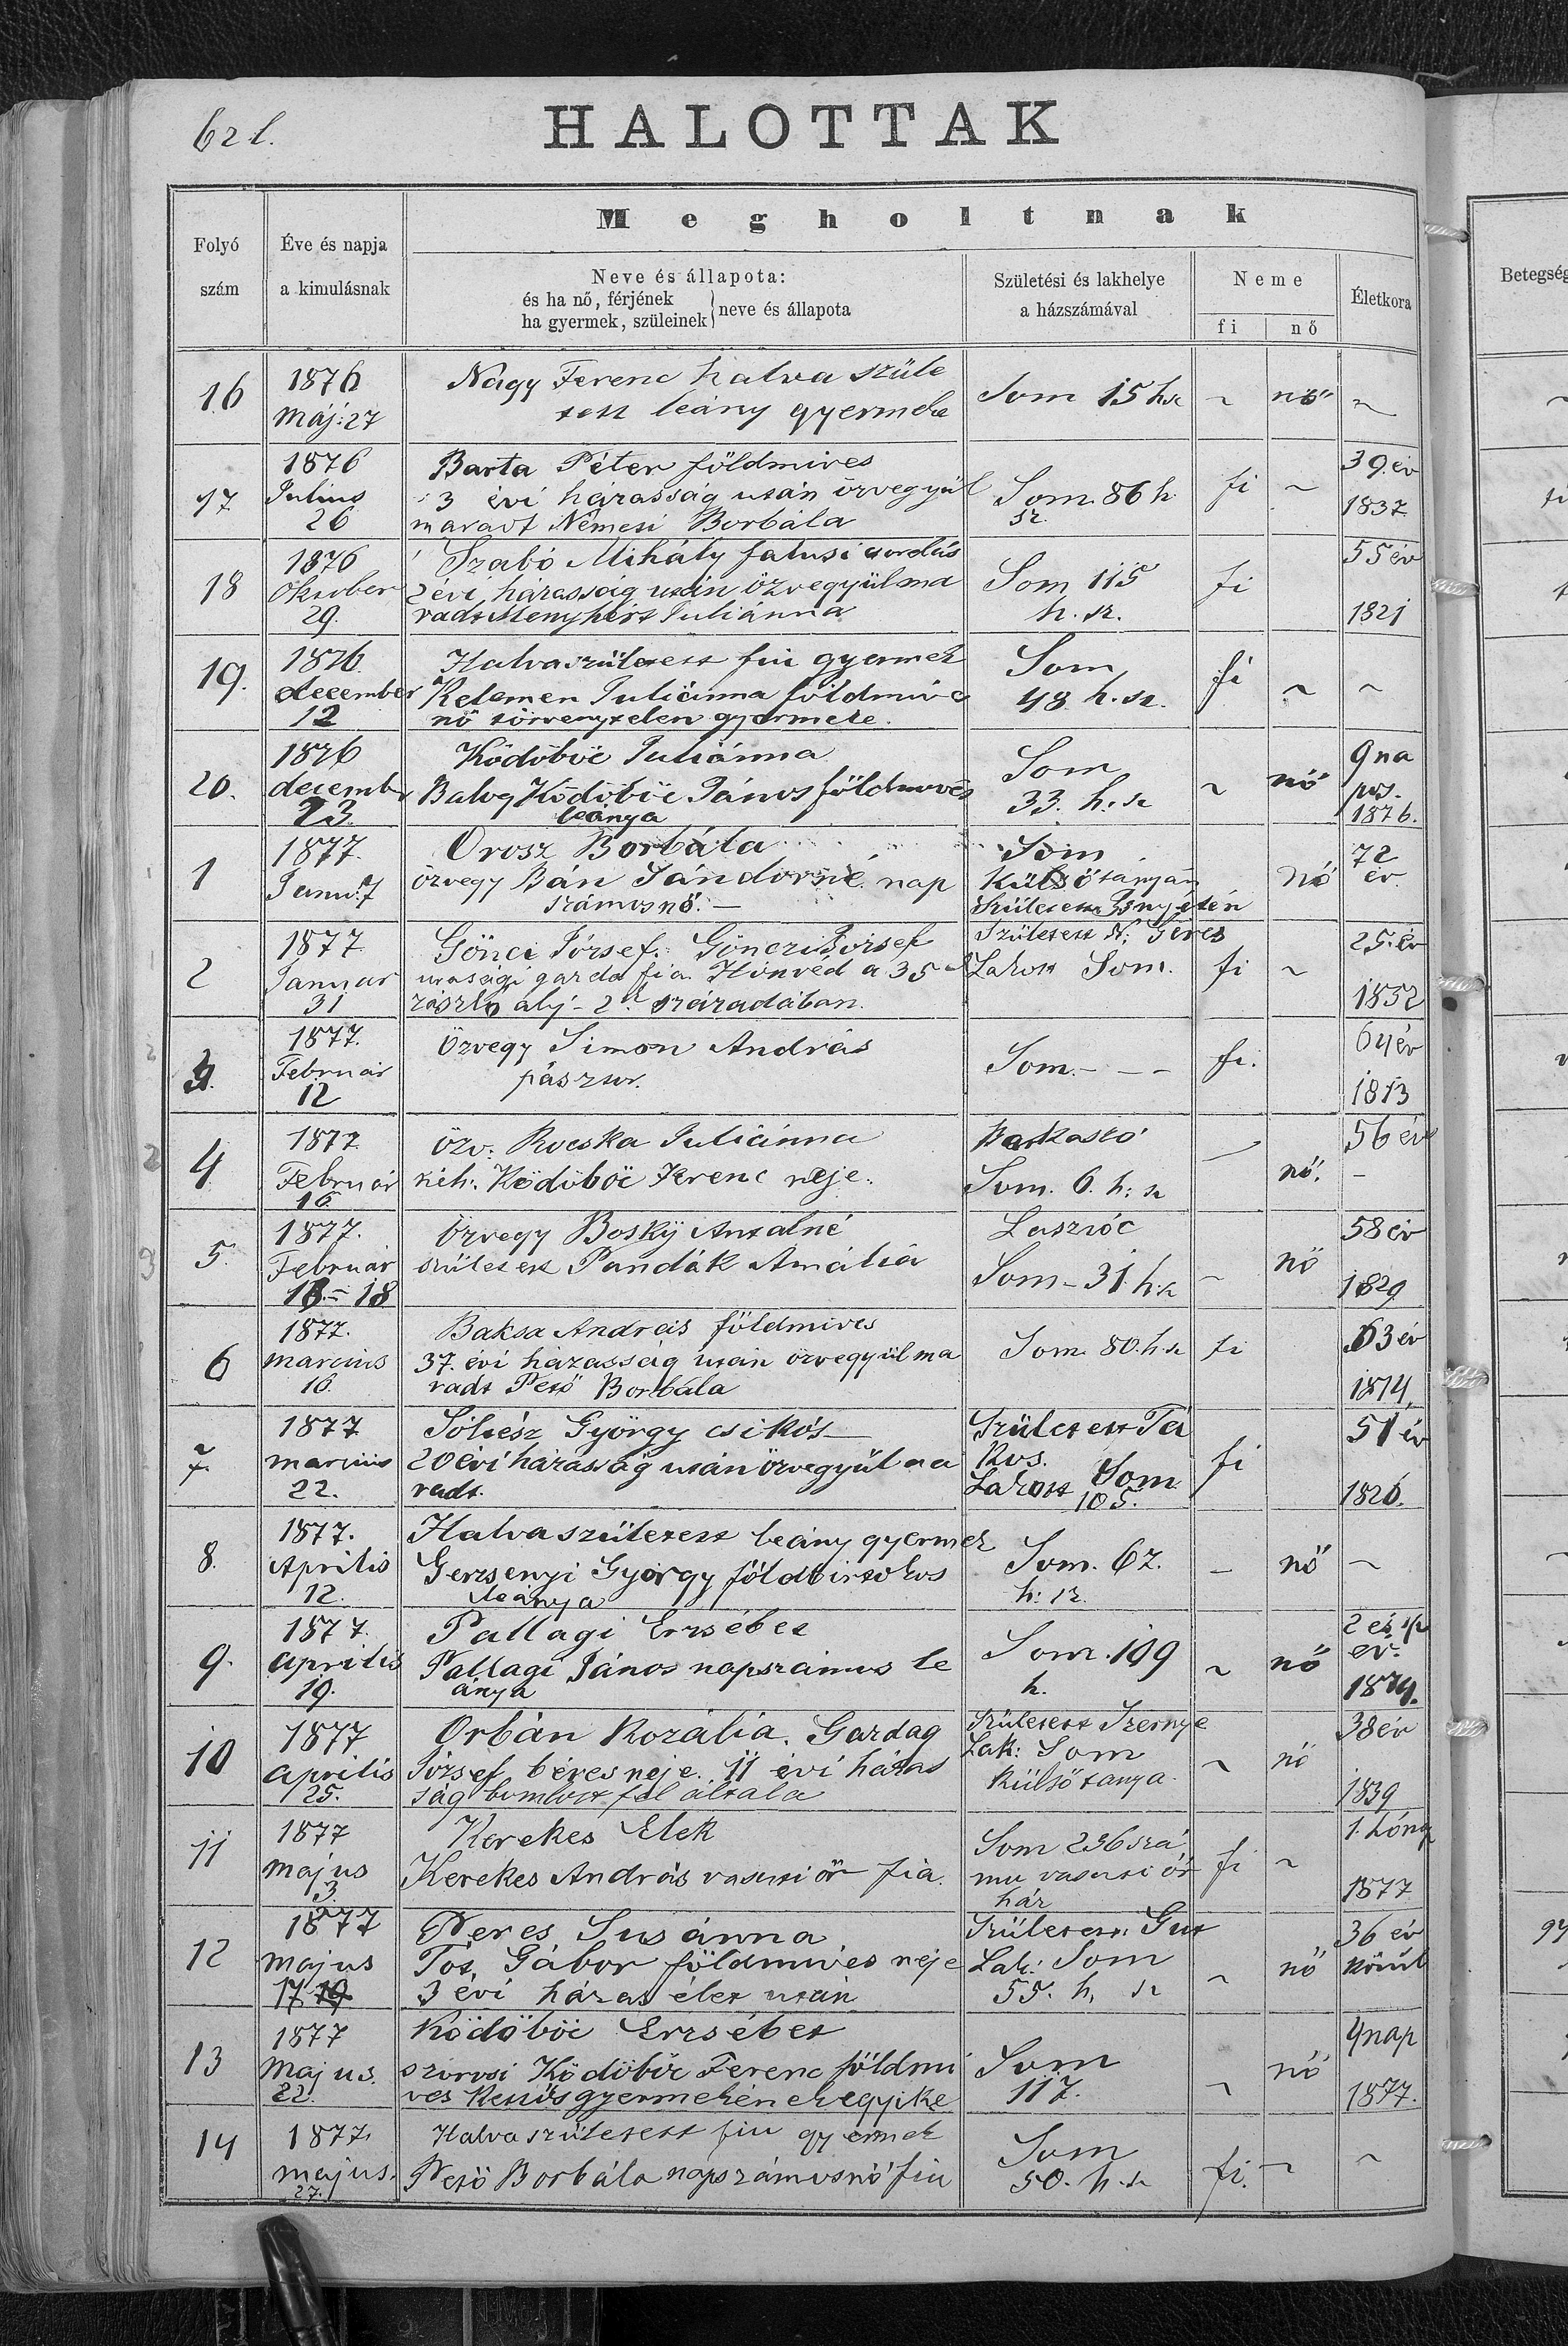 62 l.
HALOTTAK
Megholtnak
Folyó szám
Éve és napja a kimulásnak
Neve és állapota:
és ha nő, férjének
ha gyermek, szüleinek } neve és állapota
Születési és lakhelye a házszámával
Neme
fi nő
Életkora
Betegség
16 1876 Máj: 27
Nagy Ferenc halva szüle
tett leány gyermeke
Som 15 h sz ~ nő ~
17 1876 Julius 26
Barta Péter földmives
3 évi házasság után özvegyül
maradt Nemesi Borbála
Som. 86 h sz. fi ~ 39. év 1837
18 1876 Oktober 29.
Szabó Mihály falusi csordás
2 évi házasság után özvegyül ma
radt Menyhért Juliánna
Som 115 h. sz. fi 55 év 1821
19. 1876 december 12
Halva született fiu gyermek
Kelemen Juliánna földmives
nő törvénytelen gyermeke.
Som 48 h. sz. fi ~ ~
20. 1876 decembr 23
Ködöböc Juliánna
Balog Ködöböc János földmives
leánya
Som 33. h. sz ~ nő 9 na pos. 1876.
1 1877. Janu: 7
Orosz Borbála
özvegy Bán Sándorné nap
számosnő. –
Som Külső tanyán
Született Isnyétén
nő 72 év.
2 1877 Januar 31
Gönci József. Gönczi József
urasági gazda fia. Honvéd a 35
zászló alj – 2 századában.
Született N: Géres
Lakott Som. fi ~ 25. év 1852
3. 1877. Február 12
Özvegy Simon András
pásztor.
Som. – – – fi. 64 év 1813
4 1877 Február 16
Özv. Rocska Juliánna
néh: Ködöböc Ferenc neje.
Barkaszó
Som. 6. h: sz nő. 56 év –
5. 1877. Február 18
Özvegy Bosky Antalné
született Pandák Amália
Laszióc
Som – 31. h. sz ~ nő 58 év 1829
6 1877. marcius 16.
Baksa András földmives
37. évi házasság után özvegyül ma
radt Pető Borbála
Som. 80. h. sz fi 63 év 1814.
7. 1877 marcius 22.
Sólész György csikós –
20 évi házasság után özvegyül ma
radt.
Született Tá
kos.
Lakott Som
105. fi 51 év 1826.
8. 1877. Aprilis 12.
Halva született leány gyermek
Gerzsenyi György földbirtokos
leánya
Som. 67. h: sz. – nő ~
9. 1877. aprilis 19.
Pallagi Erzsébet
Pallagi János napszámos le
ánya
Som. 109 h. ~ nő 2 és ½ év. 1874.
10 1877 aprilis 25.
Orbán Rozália. Gazdag
József béres neje. 11 évi házas
ság bomlott fel általa
Született Szernye
Lak: Som
Külső tanya. ~ nő 38 év 1839
11 1877 május 3.
Kerekes Elek
Kerekes András vasuti őr fia.
Som 236 szá
mu vasuti őr
ház fi ~ 1. hónap 1877
12 1877 május 17
Veres Susánna
Tót Gábor földmives neje
3 évi házas élet után
Született: Gut
Lak: Som
55. h, sz ~ nő 36 év körül
13 1877 Május. 22.
Ködöböc Erzsébet
szorosi Ködöböc Ferenc földmi
ves kettős gyermekének egyike
Som 117. ~ nő 4 nap 1877.
14 1877. május. 27.
Halva született fiu gyermek
Pető Borbála napszámosnő fiu
Som 50. h. sz fi. ~ ~